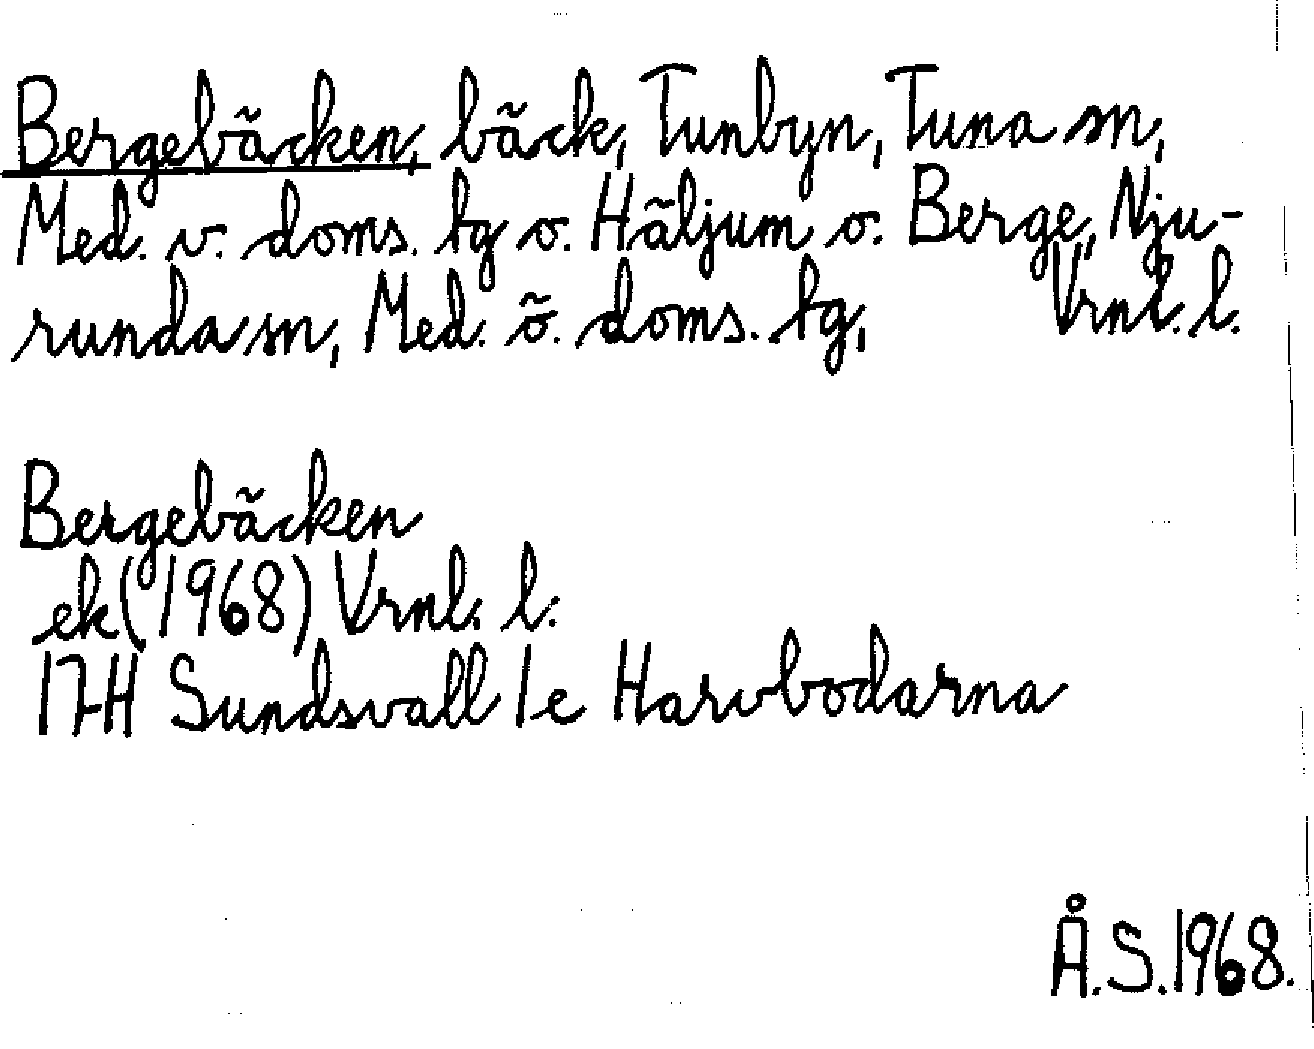 Bergebäcken, bäck, Tunbyn, Tuna sn,
Med. v. doms. tg o. Häljum o. Berge, Nju-
runda sn, Med. ö. doms. tg, Vrnl. l.
Bergebäcken
ek (1968) Vrnl. l.
17H Sundsvall 1e Harvbodarna
Å.S. 1968.